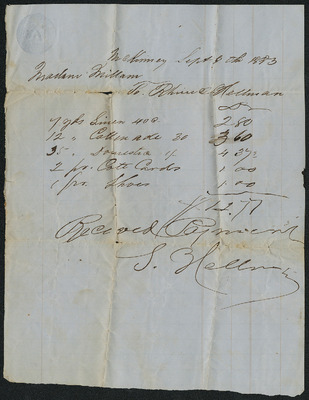 McKinney Sept 8th 1853
Madam Millam
To Rhine & Hellman
Dr
7 yds Linen 40c 2.80
12 " Cottonade 30 3 60
35 " Domestic 4 37½
2 pr. Cott Cards 1 00
1 pr. Shoes 1 00
$12.77
Received Payment
S. Hellman